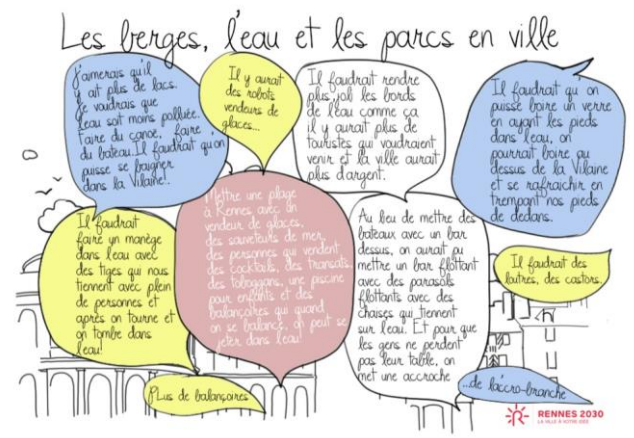 Les berges, l'eau et les parcs en ville
J'aimerais qu'il
y ait plus de lacs.
Je voudrais que
l'eau soit moins polluée.
Faire du canoë, faire
du bateau. Il faudrait qu'on
puisse se baigner
dans la Vilaine!.
Il y aurait
des robots
vendeurs de
glaces...
Il faudrait rendre
plus joli les bords
de l'eau comme ça
il y aurait plus de
touristes qui voudraient
venir et la ville aurait
plus d'argent.
Il faudrait qu'on
puisse boire un verre
en ayant les pieds
dans l'eau, on
pourrait boire au
dessus de la Vilaine
et se rafraichir en
trempant nos pieds
de dedans.
Il faudrait
faire un manège
dans l'eau avec
des tiges qui nous
tiennent avec plein
de personnes et
après on tourne et
on tombe dans
l'eau!
Mettre une plage
à Rennes avec un
vendeur de glaces,
des sauveteurs de mer,
des personnes qui vendent
des cocktails, des transats,
des toboggans, une piscine
pour enfants et des
balançoires qui quand
on se balance, on peut se
jeter dans l'eau!
Au lieu de mettre des
bateaux avec un bar
dessus, on aurait pu
mettre un bar flottant
avec des parasols
flottants avec des
chaises qui tiennent
sur l'eau. Et pour que
les gens ne perdent
pas leur table, on
met une accroche
Il faudrait des
loutres, des castors.
Plus de balançoires
...de l'accro-branche
RENNES 2030
LA VILLE À VOTRE IDÉE